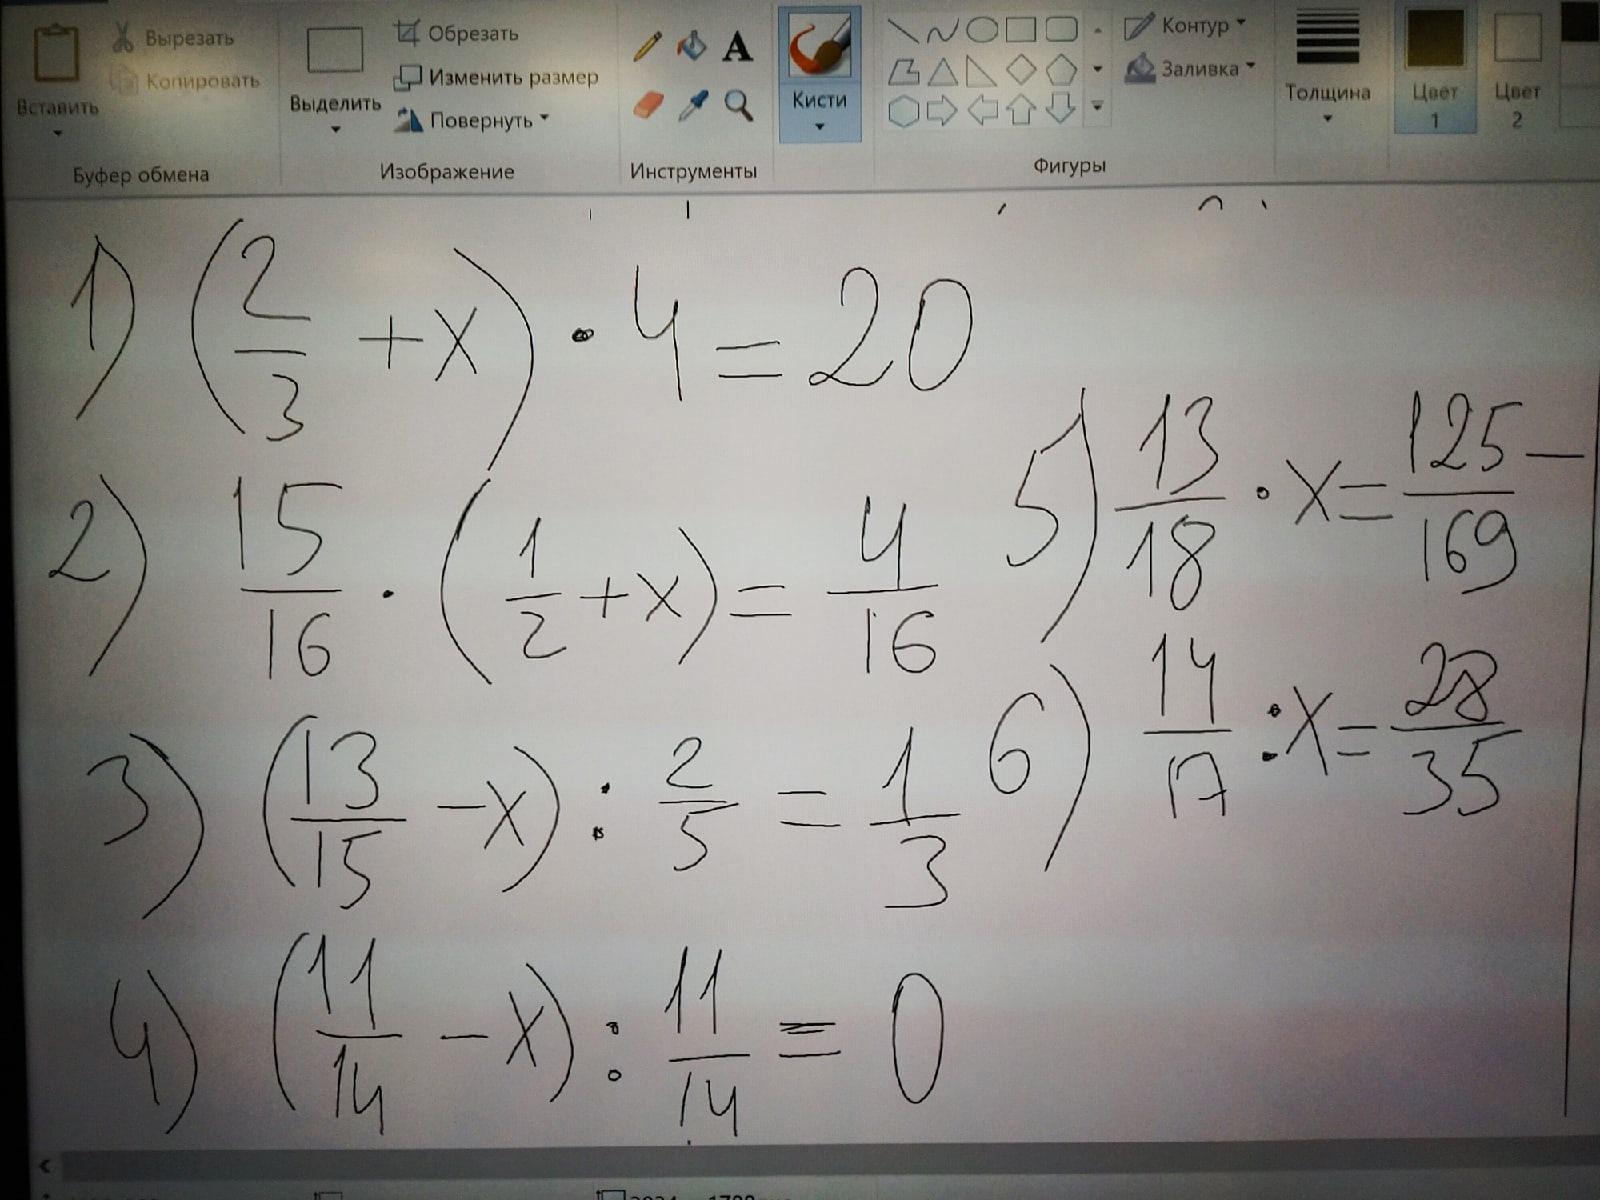 Вставить
Вырезать
Копировать
Буфер обмена
Выделить
Обрезать
Изменить размер
Повернуть
Изображение
A
Инструменты
Кисти
Контур
Заливка
Фигуры
Толщина
Цвет 1
Цвет 2
1) (2/3 + x) · 4 = 20
2) 15/16 · (1/2 + x) = 4/16
3) (13/15 - x) : 2/5 = 1/3
4) (11/14 - x) : 11/14 = 0
5) 13/18 · x = 125/169 -
6) 14/17 : x = 28/35